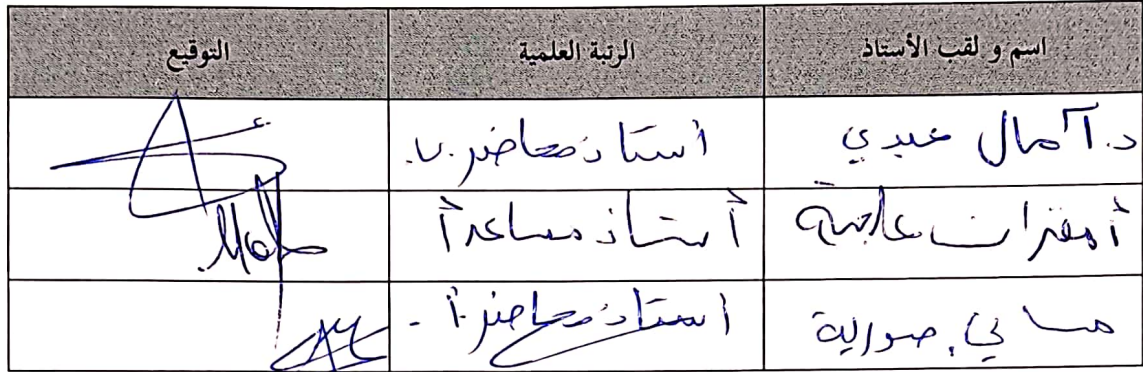 اسم و لقب الأستاذ الرتبة العلمية التوقيع
د. آمال عبدي أستاذ محاضر ب.
أ أستاذ مساعد أ
حورية أستاذ محاضر أ -